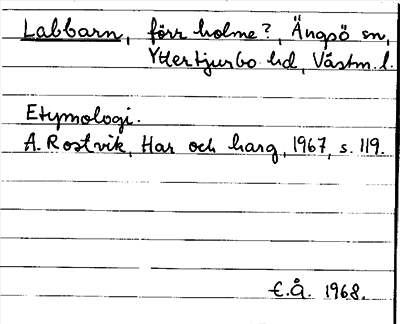 Labbarn, förr holme?, Ängsö sn,
Yttertjurbo hd, Västm. l.
Etymologi.
A. Rostvik, Har och harg, 1967, s. 119.
E.Å. 1968.